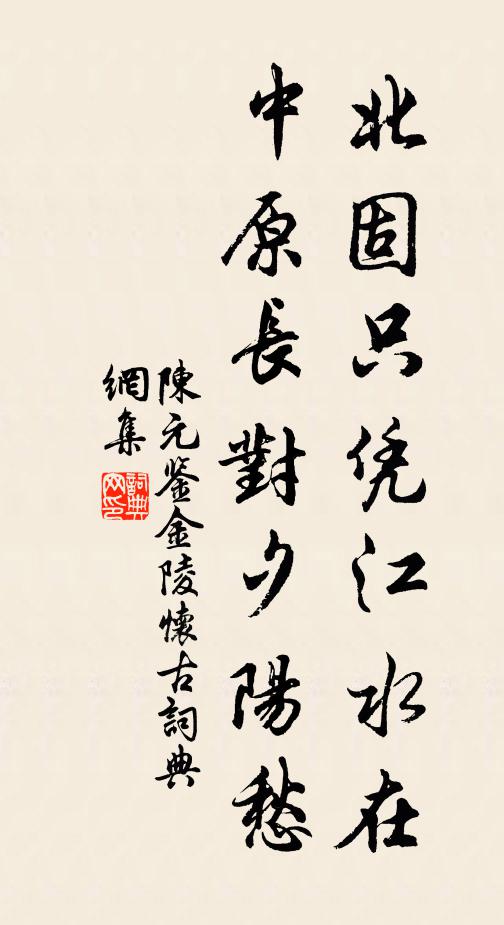 北固只凭江水在
中原長對夕陽愁
陳元鉴金陵懷古詞典
網集
詞典
网印